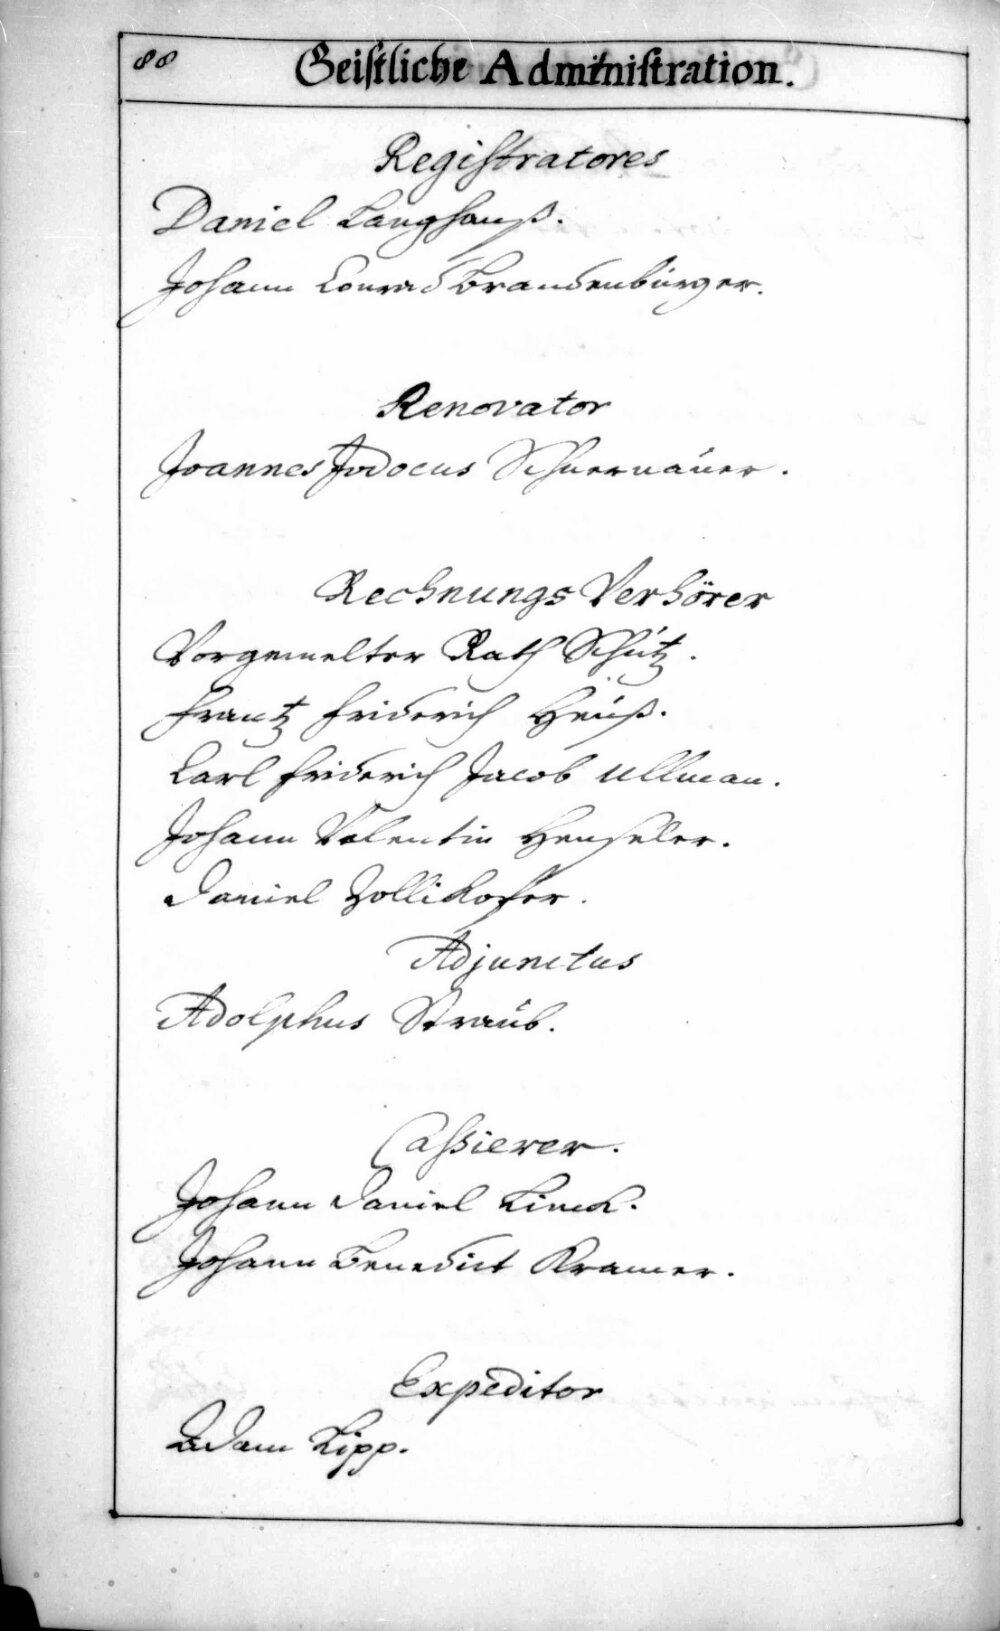 88
Geistliche Administration.
Registratores
Daniel Langhanß.
Johann Conrad Brandenburger.
Renovator
Joannes Jodocus Schnernauer.
Rechnungs Verhörer
Vorgemelter Rath Schütz.
Frantz Friderich Heuß.
Carl Friderich Jacob Ullman.
Johann Valentin Henseler.
Daniel Zollikofer.
Adjunctus
Adolphus Straub.
Caßierer.
Johann Daniel Linck.
Johann Benedict Kramer.
Expeditor
Adam Lipp.